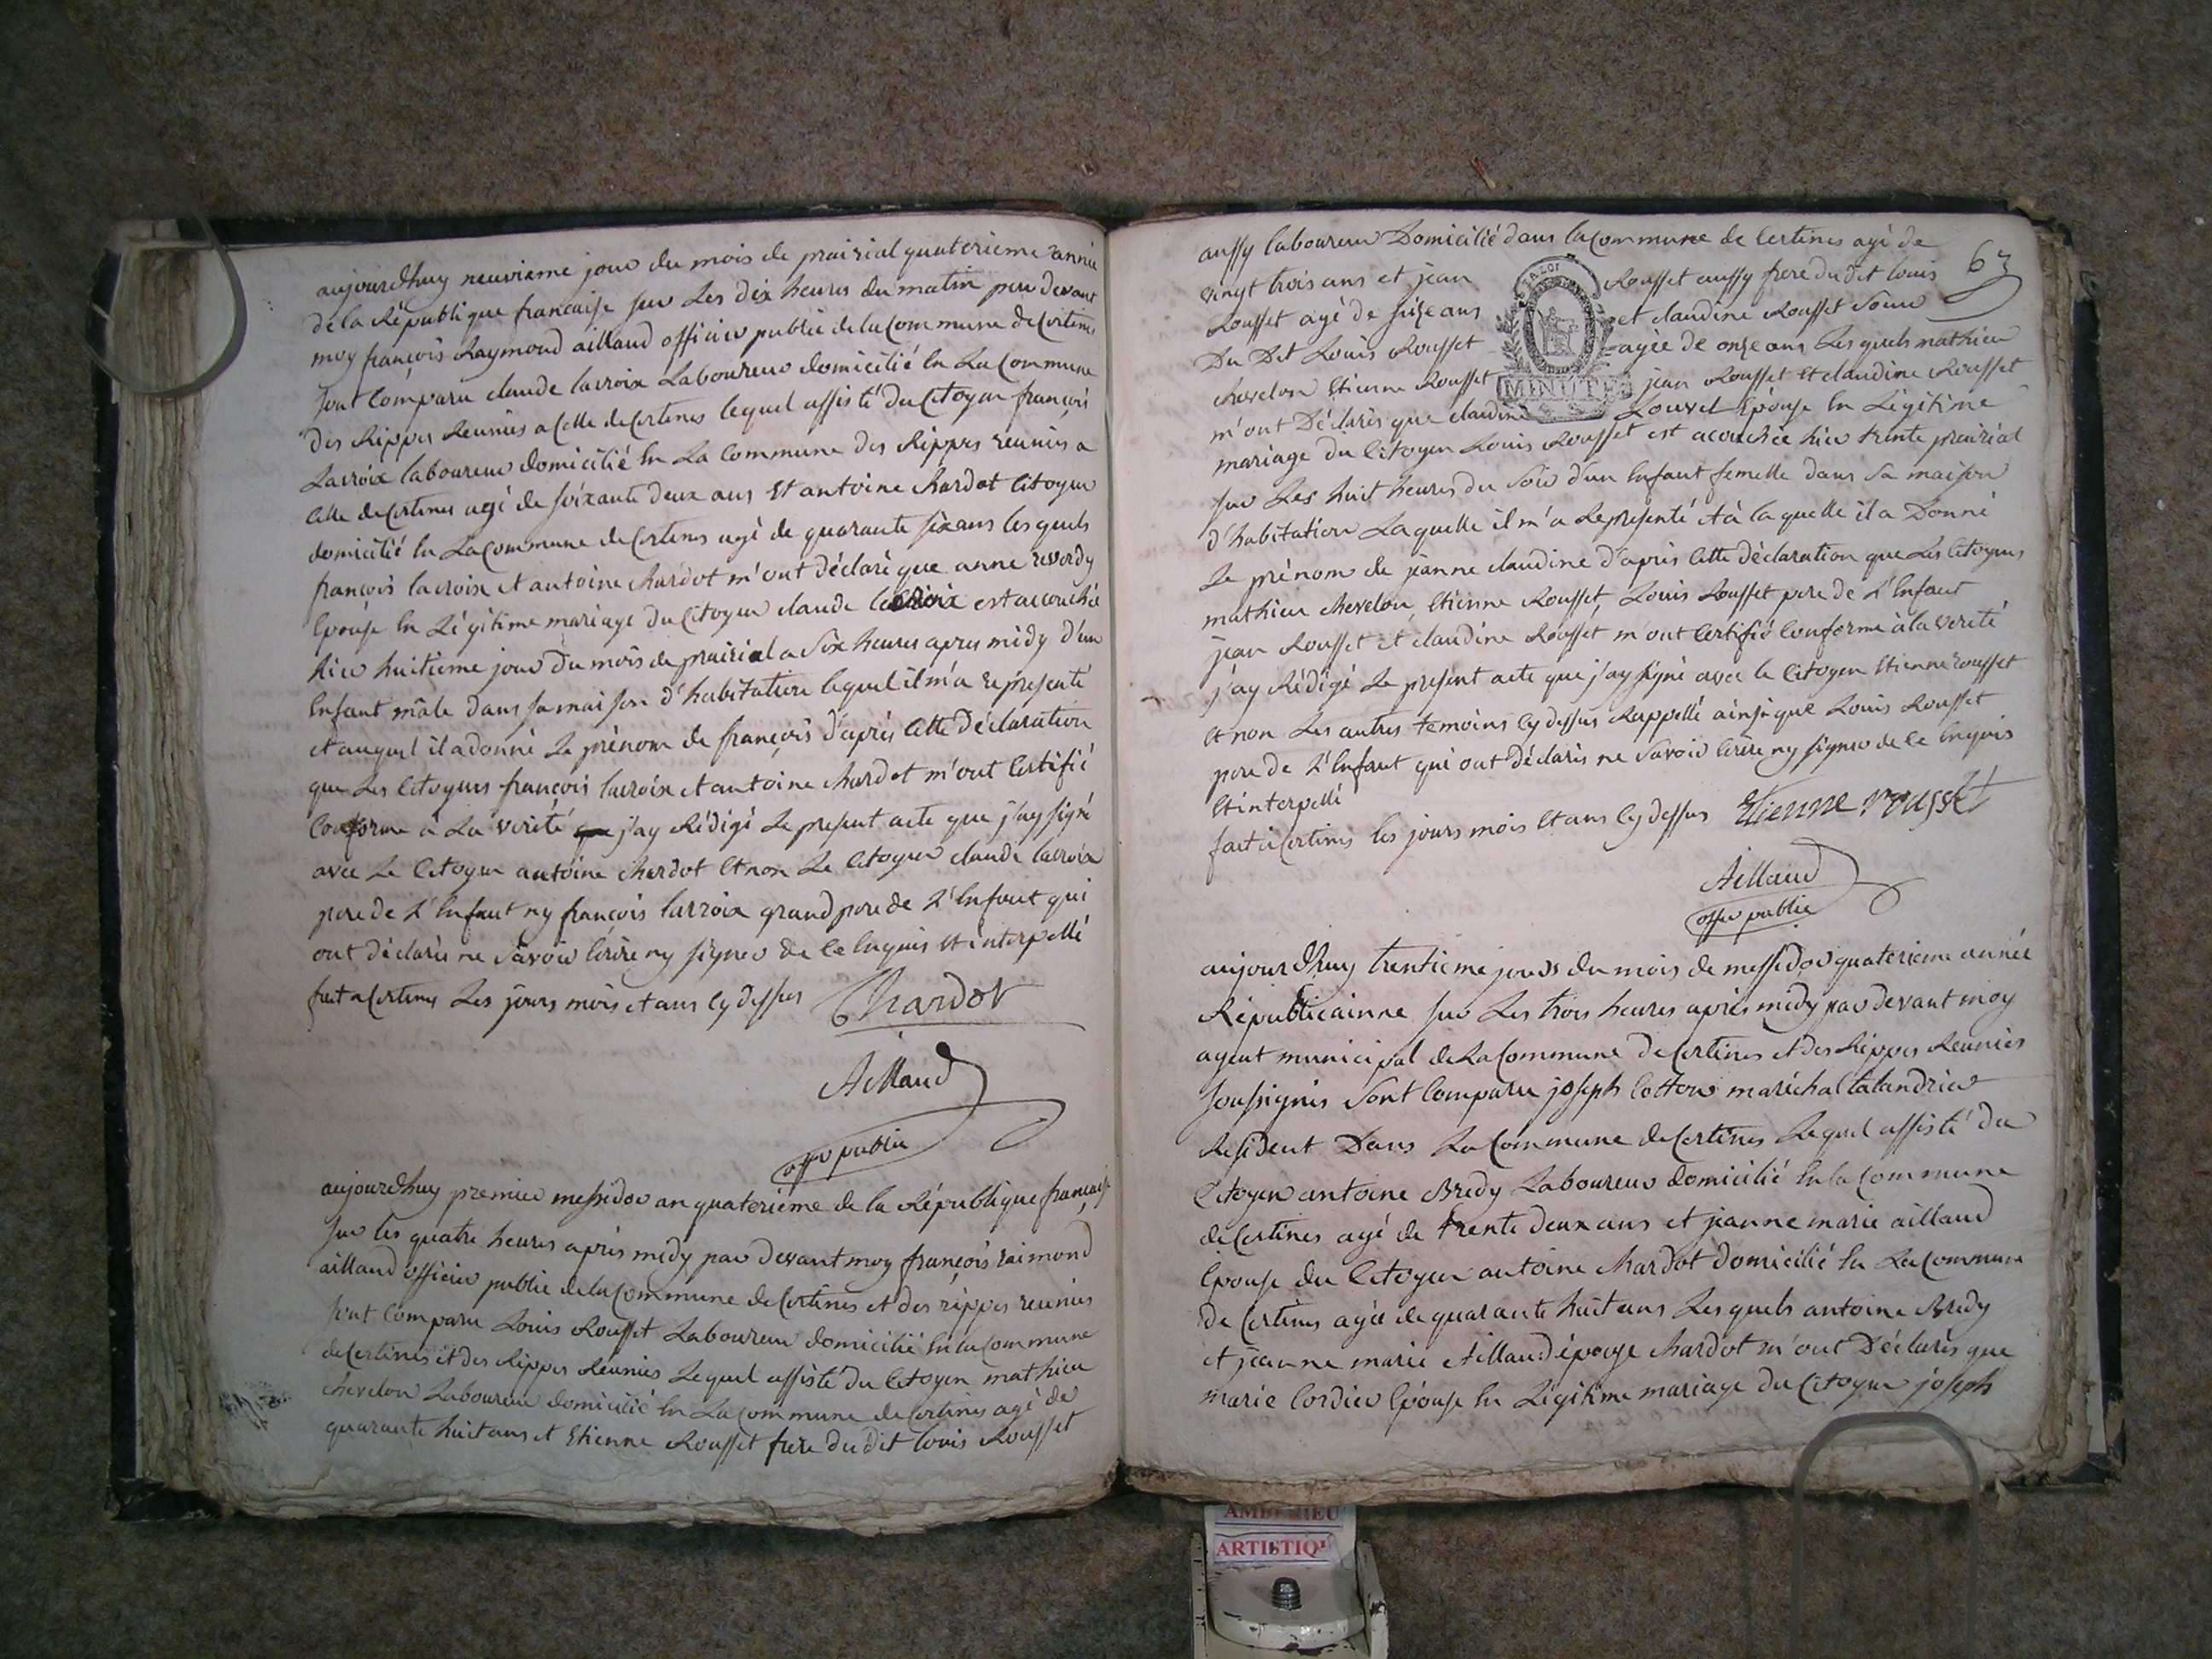 aujourdhuy neuvieme jour du mois de prairial quatorieme année
de la République francaise sur Les dix heures du matin par devant
moy françois Raymond aillaud officier public de la Commune de Certines
sont Comparu claude lacroix Laboureur domicilié En La Commune
des Rippes Reunies a Celle de Certines lequel assisté du Citoyen françois
Lacroix laboureur domicilié En La Commune des Rippes reunies a
Celle de Certines agé de soixante deux ans Et antoine chardot Citoyen
domicilié En La Commune de Certines agé de quarante six ans les quels
françois lacroix et antoine chardot m'ont déclaré que anne revordy
Epouse En Légitime mariage du Citoyen claude lacroix est accouchée
hier huitieme jour du mois de prairial a Six heures apres midy d'un
Enfant mâle dans sa maison d'habitation lequel il m'a representé
et auquel il a donné Le prénom de françois d'après Cette déclaration
que Les Citoyens françois lacroix et antoine chardot m'ont Certifié
Conforme à La verité j'ay Rédigé Le present acte que j'ay signé
avec Le Citoyen antoine chardot Et non Le Citoyen claude lacroix
pere de L'Enfant ny françois lacroix grand pere de L'Enfant qui
ont déclarés ne Savoir Ecrire ny signer de Ce Enquis Et interpellé
fait a Certines Les jours mois et ans Cy dessus Chardot
Aillaud
offer public
aujourdhuy premier messidor an quatorieme de la République française
sur les quatre heures après midy par devant moy françois raimond
aillaud officier public de la Commune de Certines et des rippes reunies
sont Comparu Louis Rousset Laboureur domicilié En la Commune
de Certines et des Rippes Reunies Lequel assisté du Citoyen mathieu
chevelon Laboureur domicilié En La Commune de Certines agé de
quarante huit ans et Etienne Rousset frere du dit louis Rousset
aussy laboureur Domicilié dans la Commune de Certines agé de
63
vingt trois ans et jean Rousset aussy frere du dit louis
LA LOI
Rousset agé de seize ans et claudine Rousset Soeur
Du Dit Louis Rousset agée de onze ans Les quels mathieu
chevelon Etienne Rousset jean Rousset Et claudine Rousset
MINUTE
m'ont Déclarés que claudine Louvet Epouse En Légitime
mariage du Citoyen Louis Rousset est acouchée hier trente prairial
sur Les huit heures du Soir d'un Enfant femelle dans Sa maison
d'habitation Laquelle il m'a Representé et à la quelle il a Donné
Le prénom de jeanne claudine d'après Cette déclaration que Les Citoyens
mathieu chevelon, Etienne Rousset, Louis Rousset pere de L'Enfant
jean Rousset et claudine Rousset m'ont Certifié Conforme à la verité
j'ay Rédigé Le present acte que j'ay signé avec le Citoyen Etienne rousset
Et non Les autres temoins Cy dessus Rappellé ainsi que Louis Rousset
pere de L'Enfant qui ont Déclarés ne Savoir Ecrire ny signer de Ce Enquis
Et interpellé
fait a Certines les jours mois Et ans Cy dessus Etienne rousset
Aillaud
offer public
aujourdhuy trentieme jours du mois de messidor quatorieme année
Républicainne sur Les trois heures après midy par devant moy
agent municipal de La Commune de Certines et des Rippes Reunies
soussignés Sont Comparu joseph Cottow maréchal talandrier
Resident Dans La Commune de Certines Lequel assisté du
Citoyen antoine Bredy Laboureur domicilié En la Commune
de Certines agé de trente deux ans et jeanne marie aillaud
Epouse du Citoyen antoine chardot domicilié En La Commune
De Certines agée de quarante huit ans Les quels antoine Bredy
et jeanne marie Aillaud épouse chardot m'ont Déclarés que
marie Cordier Epouse En Légitime mariage du Citoyen joseph
ARTISTIQ